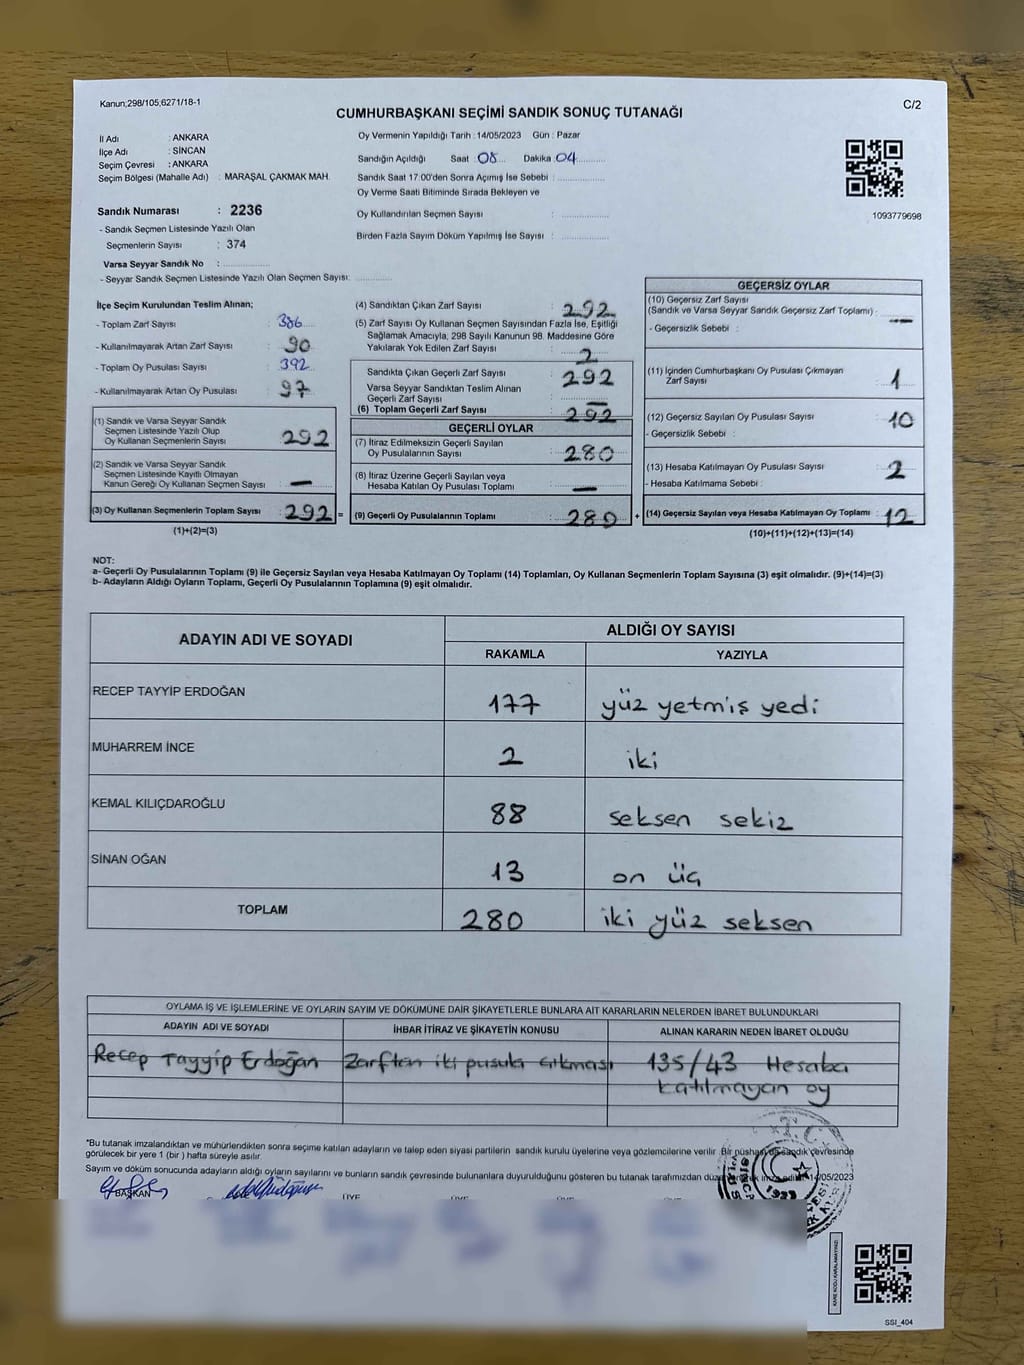 Kanun;298/105;6271/18-1
C/2
CUMHURBAŞKANI SEÇİMİ SANDIK SONUÇ TUTANAĞI
İl Adı : ANKARA
İlçe Adı : SİNCAN
Seçim Çevresi : ANKARA
Seçim Bölgesi (Mahalle Adı) : MARAŞAL ÇAKMAK MAH.
Sandık Numarası : 2236
- Sandık Seçmen Listesinde Yazılı Olan
Seçmenlerin Sayısı : 374
Varsa Seyyar Sandık No :
- Seyyar Sandık Seçmen Listesinde Yazılı Olan Seçmen Sayısı:
Oy Vermenin Yapıldığı Tarih : 14/05/2023 Gün : Pazar
Sandığın Açıldığı Saat : 08 Dakika : 04
Sandık Saat 17:00'den Sonra Açımış İse Sebebi :
Oy Verme Saati Bitiminde Sırada Bekleyen ve
Oy Kullandırılan Seçmen Sayısı :
Birden Fazla Sayım Döküm Yapılmış İse Sayısı :
1093779698
İlçe Seçim Kurulundan Teslim Alınan;
- Toplam Zarf Sayısı : 386
- Kullanılmayarak Artan Zarf Sayısı : 90
- Toplam Oy Pusulası Sayısı : 392
- Kullanılmayarak Artan Oy Pusulası : 97
(1) Sandık ve Varsa Seyyar Sandık
Seçmen Listesinde Yazılı Olup
Oy Kullanan Seçmenlerin Sayısı : 292
(2) Sandık ve Varsa Seyyar Sandık
Seçmen Listesinde Kayıtlı Olmayan
Kanun Gereği Oy Kullanan Seçmen Sayısı : —
(3) Oy Kullanan Seçmenlerin Toplam Sayısı : 292 =
(1)+(2)=(3)
(4) Sandıktan Çıkan Zarf Sayısı : 292
(5) Zarf Sayısı Oy Kullanan Seçmen Sayısından Fazla İse, Eşitliği
Sağlamak Amacıyla, 298 Sayılı Kanunun 98. Maddesine Göre
Yakılarak Yok Edilen Zarf Sayısı : 2
Sandıkta Çıkan Geçerli Zarf Sayısı : 292
Varsa Seyyar Sandıktan Teslim Alınan
Geçerli Zarf Sayısı : —
(6) Toplam Geçerli Zarf Sayısı : 292
GEÇERLİ OYLAR
(7) İtiraz Edilmeksizin Geçerli Sayılan
Oy Pusulalarının Sayısı : 280
(8) İtiraz Üzerine Geçerli Sayılan veya
Hesaba Katılan Oy Pusulası Toplamı : —
(9) Geçerli Oy Pusulalarının Toplamı : 280 +
GEÇERSİZ OYLAR
(10) Geçersiz Zarf Sayısı
(Sandık ve Varsa Seyyar Sandık Geçersiz Zarf Toplamı) : —
- Geçersizlik Sebebi :
(11) İçinden Cumhurbaşkanı Oy Pusulası Çıkmayan
Zarf Sayısı : 1
(12) Geçersiz Sayılan Oy Pusulası Sayısı : 10
- Geçersizlik Sebebi :
(13) Hesaba Katılmayan Oy Pusulası Sayısı : 2
- Hesaba Katılmama Sebebi :
(14) Geçersiz Sayılan veya Hesaba Katılmayan Oy Toplamı : 12
(10)+(11)+(12)+(13)=(14)
NOT:
a- Geçerli Oy Pusulalarının Toplamı (9) ile Geçersiz Sayılan veya Hesaba Katılmayan Oy Toplamı (14) Toplamları, Oy Kullanan Seçmenlerin Toplam Sayısına (3) eşit olmalıdır. (9)+(14)=(3)
b- Adayların Aldığı Oyların Toplamı, Geçerli Oy Pusulalarının Toplamına (9) eşit olmalıdır.
ADAYIN ADI VE SOYADI ALDIĞI OY SAYISI
RAKAMLA YAZIYLA
RECEP TAYYİP ERDOĞAN 177 yüz yetmiş yedi
MUHARREM İNCE 2 iki
KEMAL KILIÇDAROĞLU 88 seksen sekiz
SİNAN OĞAN 13 on üç
TOPLAM 280 iki yüz seksen
OYLAMA İŞ VE İŞLEMLERİNE VE OYLARIN SAYIM VE DÖKÜMÜNE DAİR ŞİKAYETLERLE BUNLARA AİT KARARLARIN NELERDEN İBARET BULUNDUKLARI
ADAYIN ADI VE SOYADI İHBAR İTİRAZ VE ŞİKAYETİN KONUSU ALINAN KARARIN NEDEN İBARET OLDUĞU
Recep Tayyip Erdoğan Zarftan iki pusula çıkması 135/43 Hesaba
katılmayan oy
*Bu tutanak imzalandıktan ve mühürlendikten sonra seçime katılan adayların ve talep eden siyasi partilerin sandık kurulu üyelerine veya gözlemcilerine verilir. Bir nüshası da sandık çevresinde
görülecek bir yere 1 (bir ) hafta süreyle asılır.
Sayım ve döküm sonucunda adayların aldığı oyların sayılarını ve bunların sandık çevresinde bulunanlara duyurulduğunu gösteren bu tutanak tarafımızdan 14/05/2023
BAŞKAN ÜYE ÜYE ÜYE
T.C.
1923
KARE KODU KARALAMAYINIZ!
SSI_404